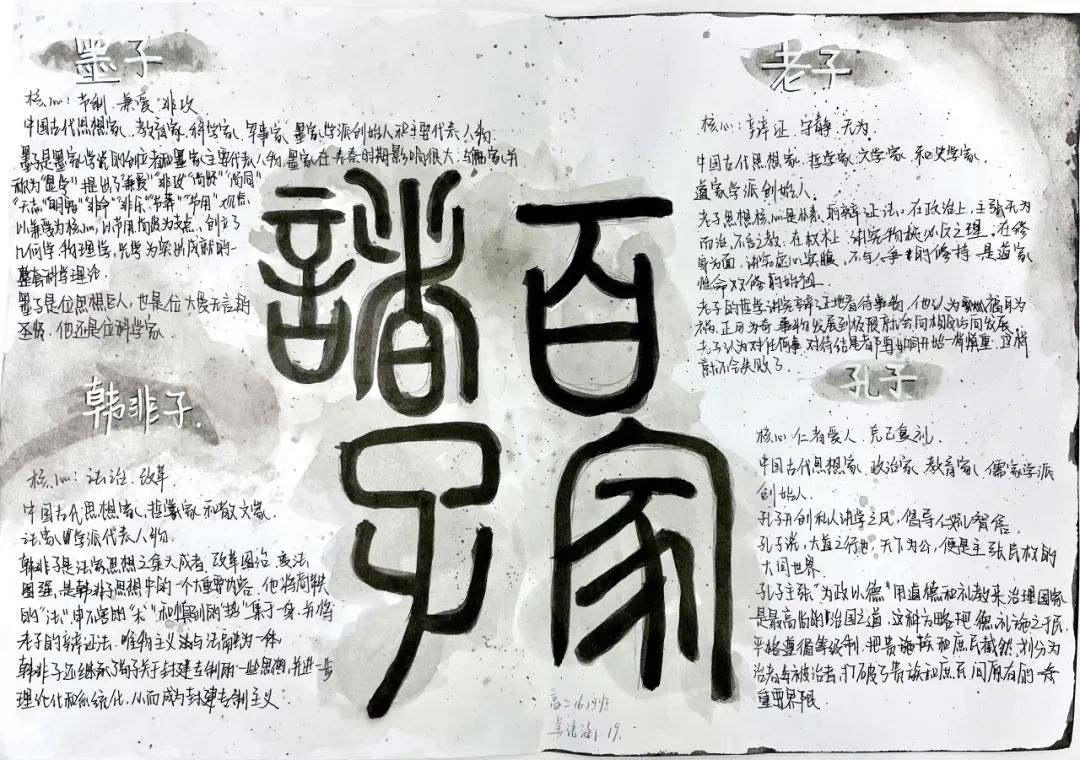 墨子
核心:节制 兼爱 非攻
中国古代思想家、教育家、科学家、军事家、墨家学派创始人和主要代表人物.
墨子是墨家学说的创立者和墨家主要代表人物.墨家在先秦时期影响很大,与儒家并
称为"显学"提出了"兼爱""非攻""尚贤""尚同"
"天志""明鬼""非命""非乐""节葬""节用"观点.
以兼爱为核心,以节用尚贤为支点,创立了
以几何学、物理学、光学为突出成就的一
整套科学理论.
墨子是位思想巨人,也是位大爱无言的
圣贤,他还是位科学家.
韩非子.
核心:法治、改革
中国古代思想家、哲学家和散文家.
法家学派代表人物.
韩非子是法家思想之集大成者,改革图治,变法
图强,是韩非子思想中的一个重要内容.他将商鞅
的"法",申不害的"术"和慎到的"势"集于一身,并将
老子的辩证法、唯物主义与法融为一体
韩非子还继承了荀子关于封建专制的一些思想,并进一步
理论化和系统化,从而成为封建专制主义.
諸子
百家
老子
核心:辩证、守静、无为.
中国古代思想家、哲学家、文学家、和史学家.
道家学派创始人.
老子思想核心是朴素的辩证法。在政治上,主张无为
而治,不言之教.在权术上,讲究物极必反之理.在修
身方面,讲究虚心实腹,不与人争的修持,是道家
性命双修的始祖.
老子的哲学讲究辩证地看待事物,他认为福可为
祸,正可为奇,事物发展到极限就会向相反方向发展.
老子认为对任何事,对待结尾都要如同开始一样慎重,这样
就不会失败了.
孔子
核心:仁者爱人、克己复礼.
中国古代思想家、政治家、教育家、儒家学派
创始人.
孔子开创私人讲学之风,倡导仁义礼智信.
孔子说,大道之行也,天下为公,便是主张民权的
大同世界
孔子主张"为政以德"用道德和礼教来治理国家
是最高尚的治国之道.这种方略把德、礼施之于民,
严格遵循等级制,把贵族和庶民截然划分为
治者与被治者,打破了贵族和庶民间原有的一条
重要界限.
高二(6)班
19.